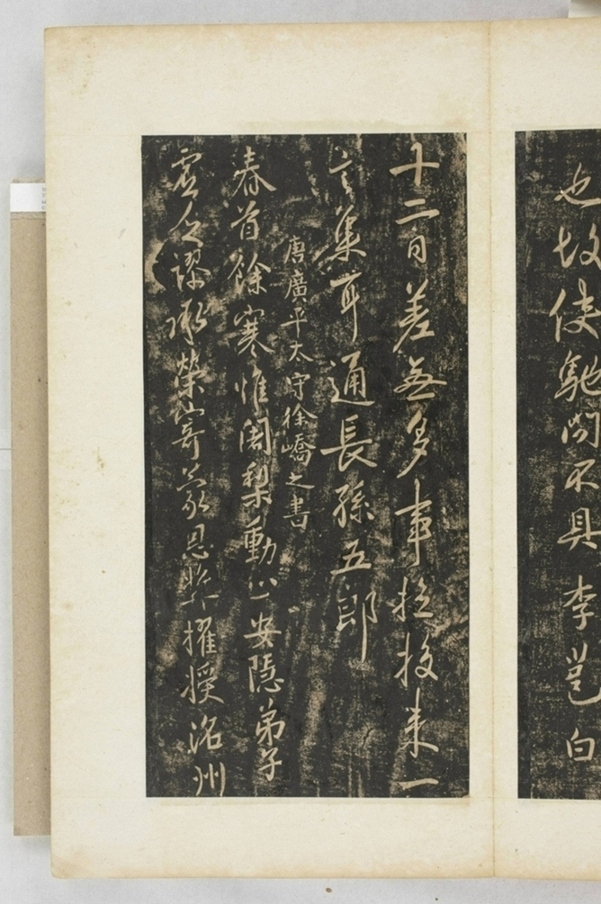 也故使馳問不具李邕白
十二日差無多事拉挍來一
言集耳通長孫五郎
唐廣平太守徐嶠之書
春首餘寒惟闍梨動止安隱弟子
虛乏謬承榮寄蒙恩獎擢授洺州